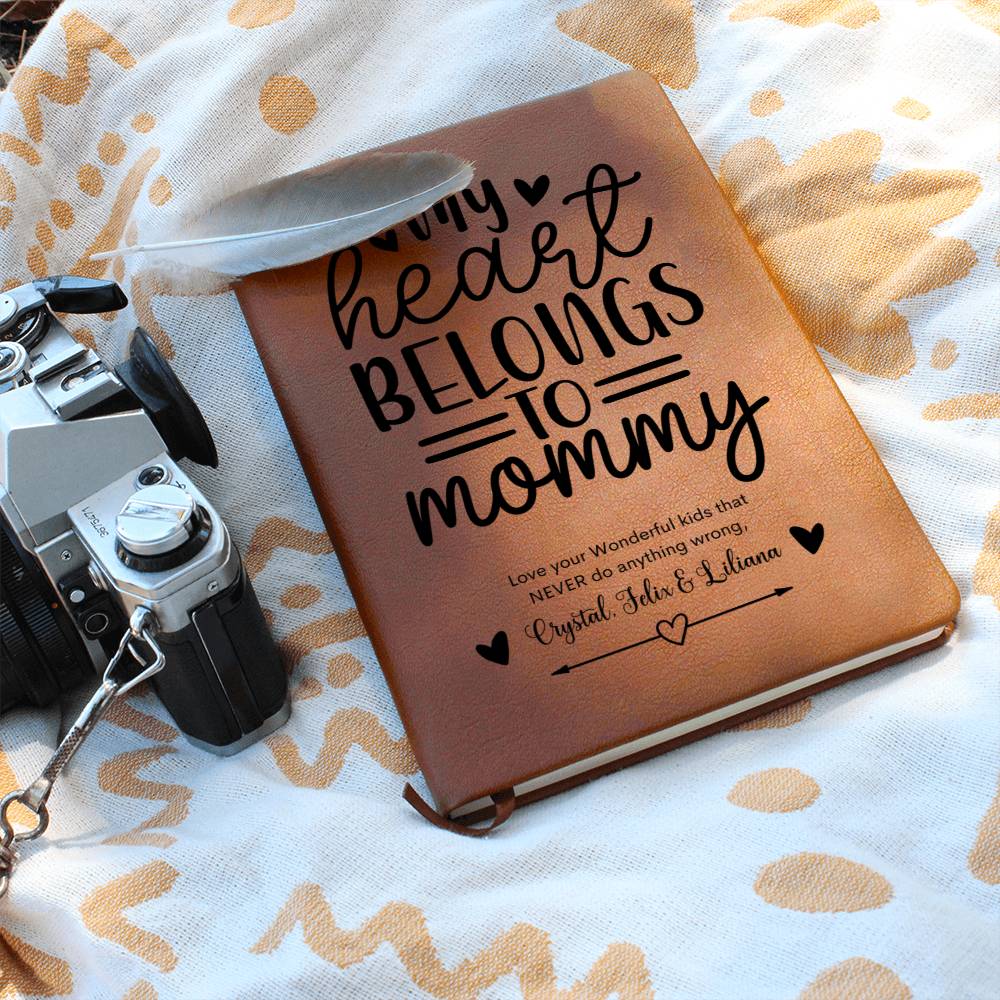 my
heart
BELONGS
TO
mommy
Love your Wonderful kids that
NEVER do anything wrong,
Crystal, Felix & Liliana